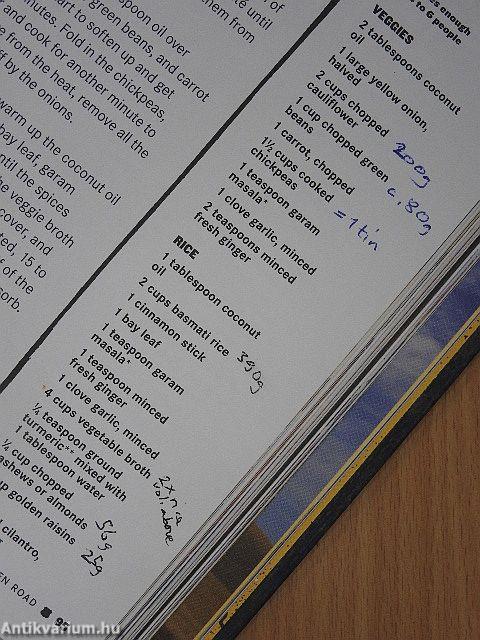 spoon oil over
green beans, and carrot
art to soften up and get
nutes. Fold in the chickpeas,
and cook for another minute to
e from the heat, remove all the
ff by the onions.
warm up the coconut oil
bay leaf, garam
until the spices
he veggie broth
cover, and
ted, 15 to
f of the
sorb.
enough
to 6 people
VEGGIES
2 tablespoons coconut
oil
1 large yellow onion,
halved
2 cups chopped
cauliflower 200g
1 cup chopped green
beans c. 80g
1 carrot, chopped
1½ cups cooked
chickpeas = 1 tin
1 teaspoon garam
masala*
1 clove garlic, minced
2 teaspoons minced
fresh ginger
RICE
1 tablespoon coconut
oil
2 cups basmati rice 390g
1 cinnamon stick
1 bay leaf
1 teaspoon garam
masala*
1 teaspoon minced
fresh ginger
1 clove garlic, minced
4 cups vegetable broth
¼ teaspoon ground
turmeric** mixed with
1 tablespoon water
¼ cup chopped
cashews or almonds 56g
up golden raisins 25g
cilantro,
EN ROAD 95
Antikvarium.hu